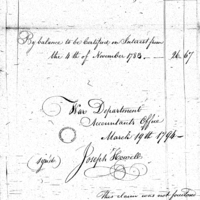 By balance to be Certified on Interest from
the 4th of November 1783. — 26.67
War Department
Accountants Office
March 19th 1794 —
signed Joseph Howell
This claim was not